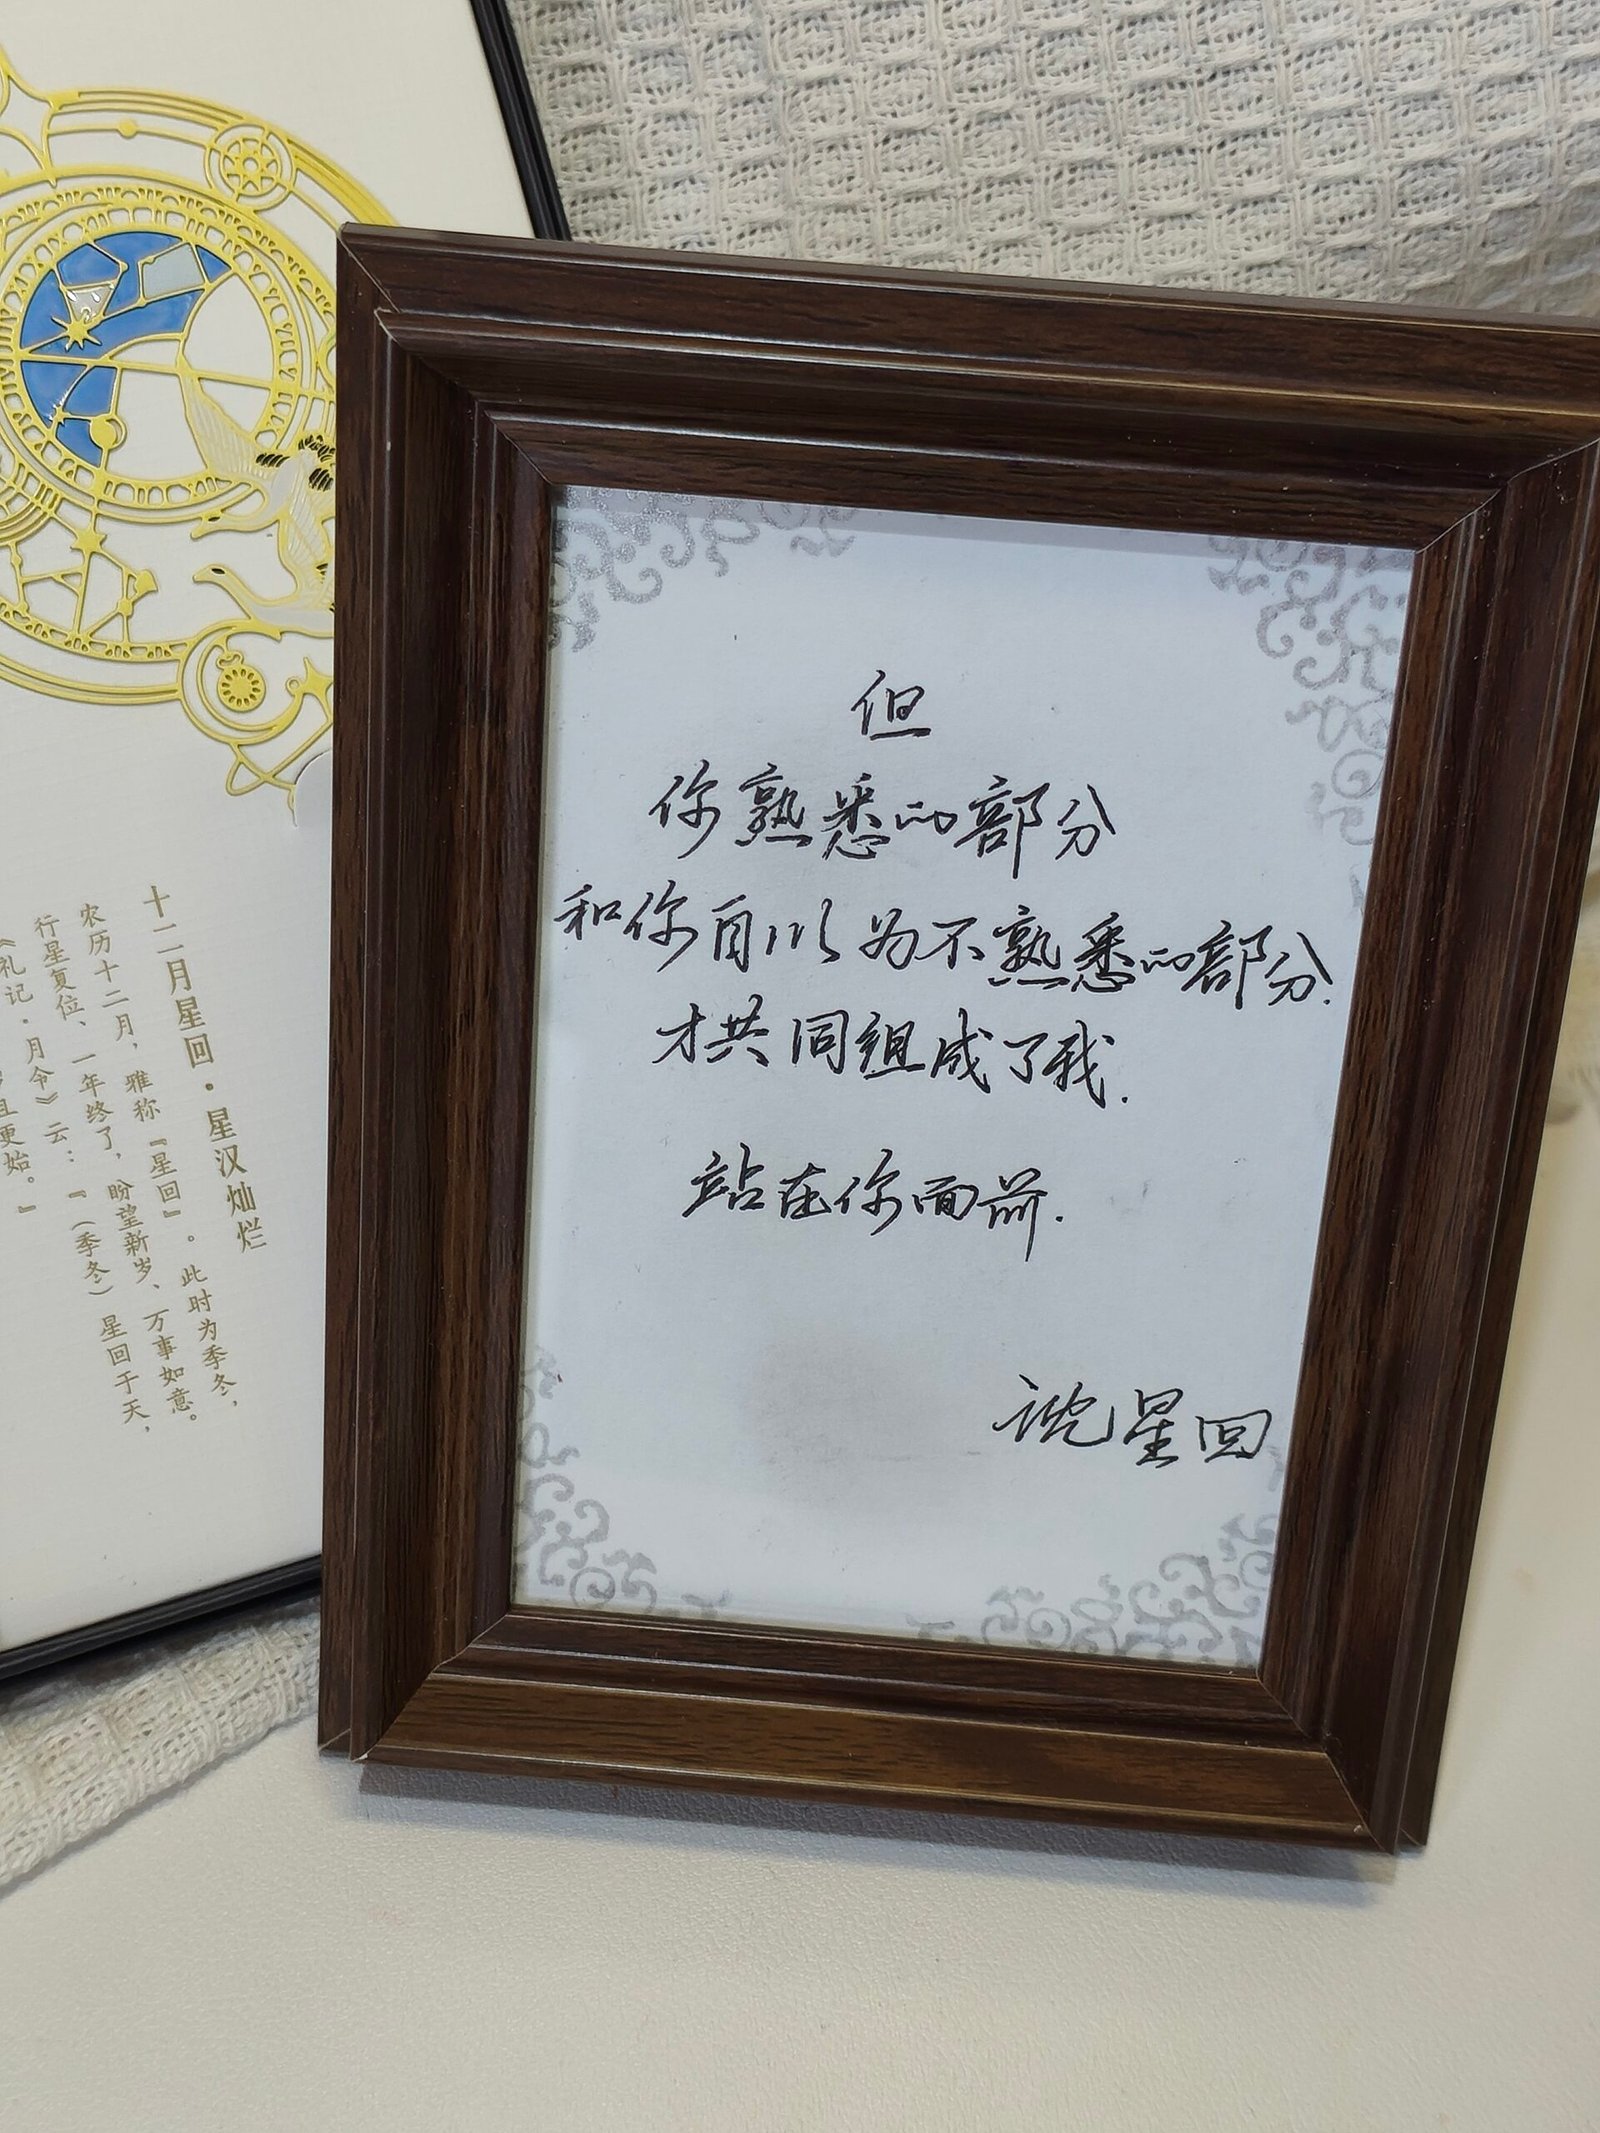 十二月星回·星汉灿烂
农历十二月，雅称『星回』。此时为季冬，
行星复位、一年终了，盼望新岁、万事如意。
《礼记·月令》云：『（季冬）星回于天，
且更始。』
但
你熟悉的部分
和你自以为不熟悉的部分.
才共同组成了我.
站在你面前.
沈星回